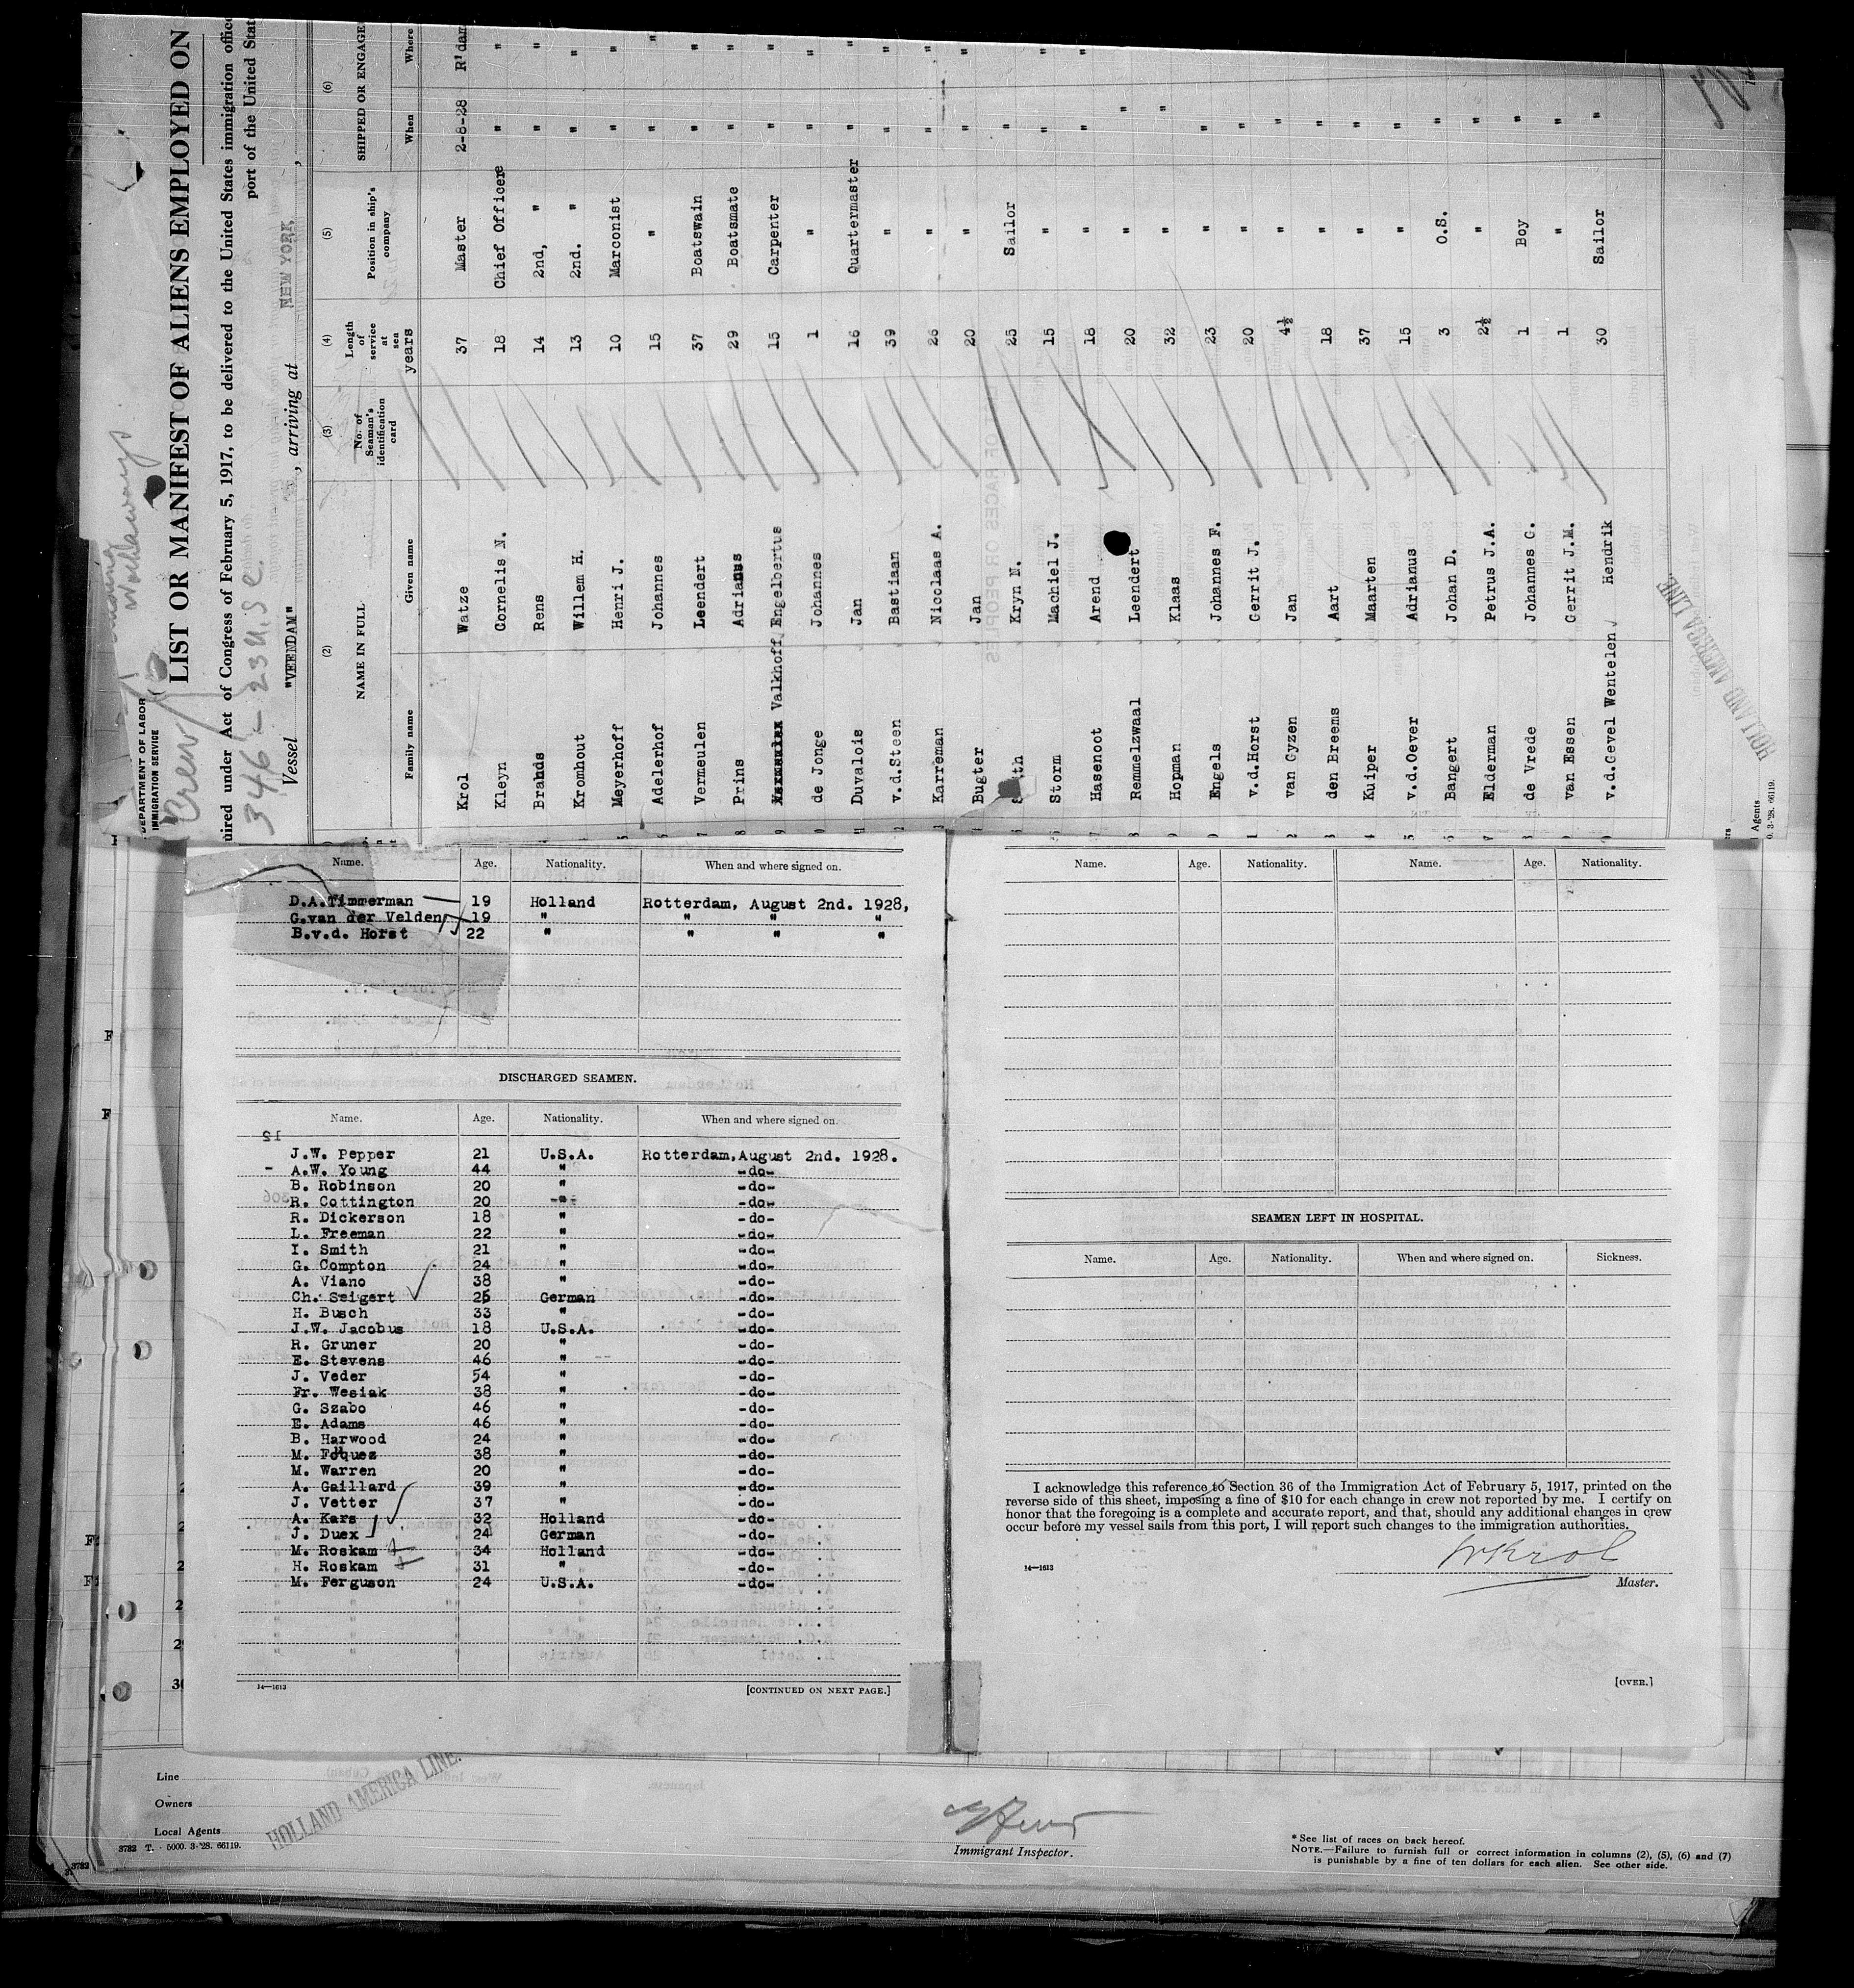 DEPARTMENT OF LABOR
IMMIGRATION SERVICE
Crew
Workaways
LIST OR MANIFEST OF ALIENS EMPLOYED ON
uired under Act of Congress of February 5, 1917, to be delivered to the United States immigration office
port of the United Stat
346 - 23 U.S.C.
Vessel "VEENDAM", arriving at NEW YORK,
(2) (3) (4) (5) (6)
NAME IN FULL No. of Seaman's identification card Length of service at sea Position in ship's company SHIPPED OR ENGAGE
Family name Given name years When Where
Krol Watze 37 Master 2-8-28 R'dam
Kleyn Cornelis N. 18 Chief Officer " "
Brands Rens 14 2nd, " " "
Kromhout Willem H. 13 2nd. " " "
Meyerhoff Henri J. 10 Marconist " "
Adelerhof Johannes 15 " " "
Vermeulen Leendert 37 Boatswain " "
Prins Adrianus 29 Boatsmate " "
Valkhoff, Engelbertus 15 Carpenter " "
de Jonge Johannes 1 " " "
Duvalois Jan 16 Quartermaster " "
v.d.Steen Bastiaan 39 " " "
Karreman Nicolaas A. 26 " " "
Bugter Jan 20 " " "
Smith Kryn N. 25 Sailor " "
Storm Machiel J. 15 " " "
Hasenoot Arend 18 " " "
Remmelzwaal Leendert 20 " "
Hopman Klaas 32 " "
Engels Johannes F. 23 " "
v.d.Horst Gerrit J. 20 " "
van Gyzen Jan 4½ " "
den Breems Aart 18 " "
Kuiper Maarten 37 " "
v.d.Oever Adrianus 15 " "
Bangert Johan D. 3 O.S. "
Elderman Petrus J.A. 2½ " "
de Vrede Johannes G. 1 Boy "
van Essen Gerrit J.M. 1 " "
v.d.Gevel Wentelen Hendrik 30 Sailor "
HOLLAND AMERICA LINE.
Agents
0. 3-'28. 66119.
Name. Age. Nationality. When and where signed on.
D.A.Timmerman 19 Holland Rotterdam, August 2nd. 1928,
G.van der Velden 19 " " " "
B.v.d. Horst 22 " " " "
DISCHARGED SEAMEN.
Name. Age. Nationality. When and where signed on.
J.W. Pepper 21 U.S.A. Rotterdam,August 2nd. 1928.
- A.W. Young 44 " -do-
B. Robinson 20 " -do-
R. Cottington 20 -"- -do-
R. Dickerson 18 " -do-
L. Freeman 22 " -do-
I. Smith 21 " -do-
G. Compton 24 " -do-
A. Viano 38 " -do-
Ch. Seigert 25 German -do-
H. Busch 33 " -do-
J.W. Jacobus 18 U.S.A. -do-
R. Gruner 20 " -do-
E. Stevens 46 " -do-
J. Veder 54 " -do-
Fr. Wesiak 38 " -do-
G. Szabo 46 " -do-
E. Adams 46 " -do-
B. Harwood 24 " -do-
M. Fuquez 38 " -do-
M. Warren 20 " -do-
A. Gaillard 39 " -do-
J. Vetter 37 " -do-
A. Kars 32 Holland -do-
J. Duex 24 German -do-
M. Roskam 34 Holland -do-
H. Roskam 31 " -do-
M. Ferguson 24 U.S.A. -do-
14—1613 [CONTINUED ON NEXT PAGE.]
Name. Age. Nationality. Name. Age. Nationality.
SEAMEN LEFT IN HOSPITAL.
Name. Age. Nationality. When and where signed on. Sickness.
I acknowledge this reference to Section 36 of the Immigration Act of February 5, 1917, printed on the
reverse side of this sheet, imposing a fine of $10 for each change in crew not reported by me. I certify on
honor that the foregoing is a complete and accurate report, and that, should any additional changes in crew
occur before my vessel sails from this port, I will report such changes to the immigration authorities.
WKrol
14—1613
Master.
[OVER.]
Line
Owners
Local Agents
HOLLAND AMERICA LINE.
3782 T. - 5000. 3-'28. 66119.
3782
Immigrant Inspector.
* See list of races on back hereof.
NOTE.—Failure to furnish full or correct information in columns (2), (5), (6) and (7)
is punishable by a fine of ten dollars for each alien. See other side.